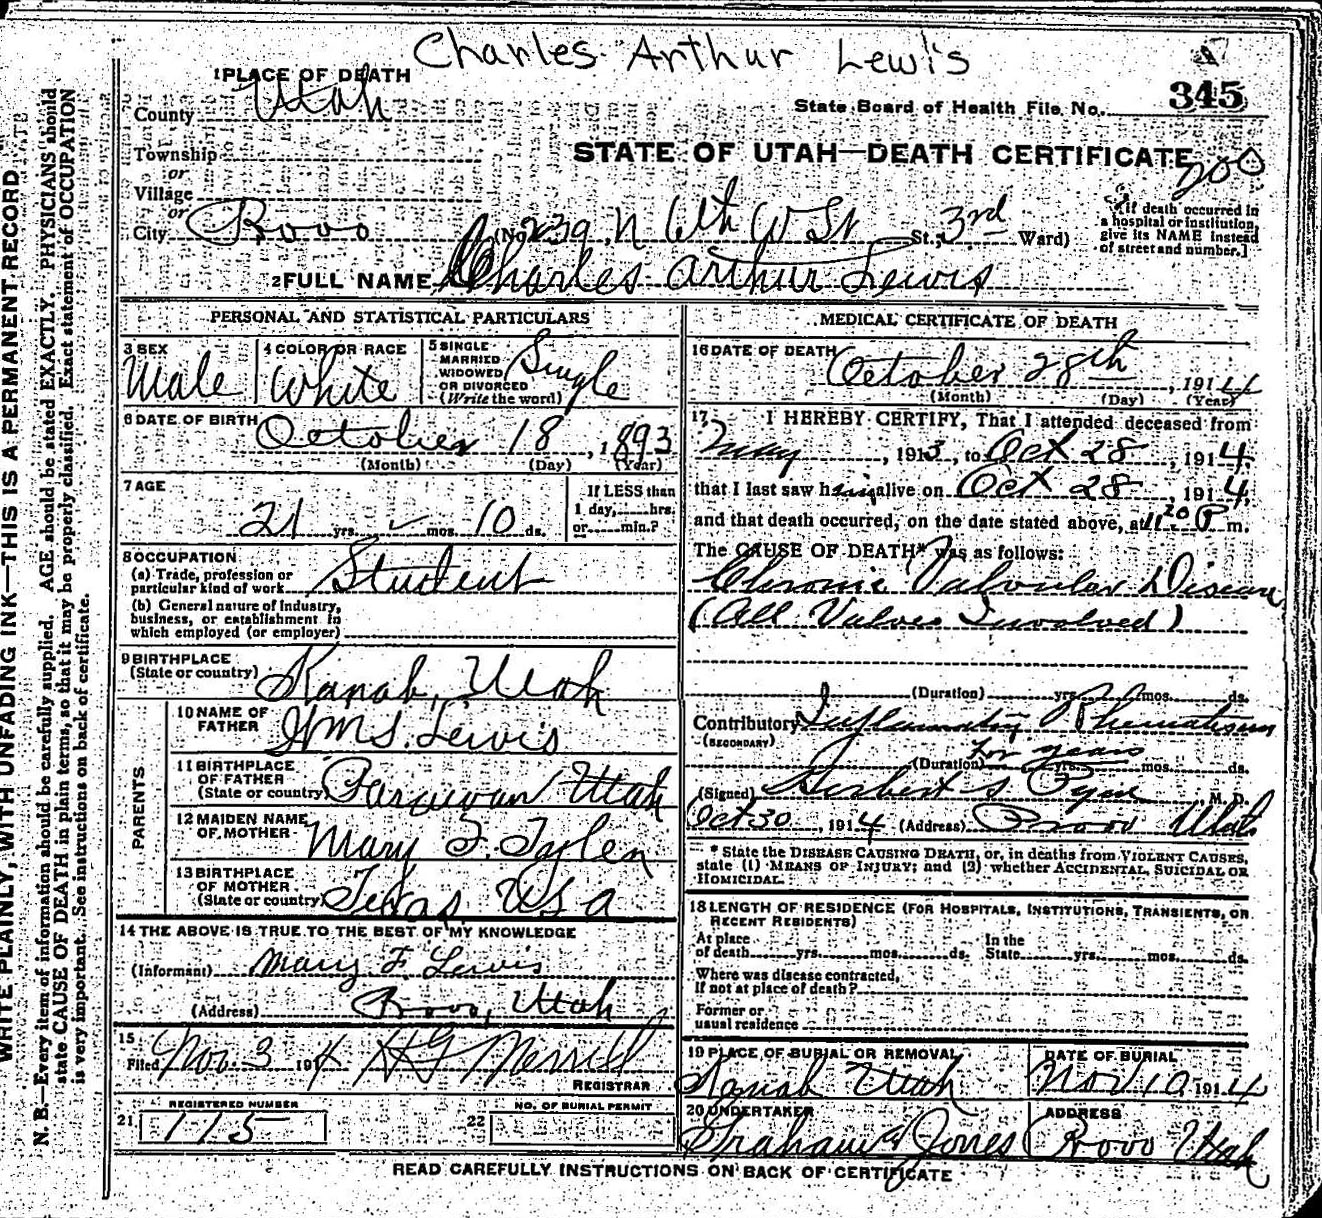 Charles Arthur Lewis
1 PLACE OF DEATH
County Utah
State Board of Health File No. 345
Township
or
STATE OF UTAH—DEATH CERTIFICATE
200
Village
or
City Provo (No. 239 N 6th W St St.; 3rd Ward)
[If death occurred in
a hospital or institution,
give its NAME instead
of street and number.]
2 FULL NAME Charles Arthur Lewis
PERSONAL AND STATISTICAL PARTICULARS
3 SEX
Male
4 COLOR OR RACE
White
5 SINGLE
MARRIED
WIDOWED
OR DIVORCED
(Write the word)
Single
6 DATE OF BIRTH
October 18, 1893
(Month) (Day) (Year)
7 AGE
21 yrs. mos. 10 ds.
If LESS than
1 day, hrs.
or min.?
8 OCCUPATION
(a) Trade, profession or
particular kind of work Student
(b) General nature of Industry,
business, or establishment in
which employed (or employer)
9 BIRTHPLACE
(State or country) Kanab, Utah
PARENTS
10 NAME OF
FATHER Wm S. Lewis
11 BIRTHPLACE
OF FATHER
(State or country) Parowan Utah
12 MAIDEN NAME
OF MOTHER Mary F. Tyler
13 BIRTHPLACE
OF MOTHER
(State or country) Texas, USA
14 THE ABOVE IS TRUE TO THE BEST OF MY KNOWLEDGE
(Informant) Mary F. Lewis
(Address) Provo, Utah
15
Filed Nov. 3 1914 HG Merrill
REGISTRAR
21 REGISTERED NUMBER
115
22 NO. OF BURIAL PERMIT
MEDICAL CERTIFICATE OF DEATH
16 DATE OF DEATH
October 28th, 1914
(Month) (Day) (Year)
17 I HEREBY CERTIFY, That I attended deceased from
May, 1913, to Oct 28, 1914,
that I last saw him alive on Oct 28, 1914,
and that death occurred, on the date stated above, at 11 20 P m.
The CAUSE OF DEATH* was as follows:
Chronic Valvular Disease
(All Valves Involved)
(Duration) yrs. mos. ds.
Contributory Inflammatory Rheumatism
(SECONDARY)
for years
(Duration) yrs. mos. ds.
(Signed) Herbert S Pyne M. D.
Oct 30, 1914 (Address) Provo Utah
* State the DISEASE CAUSING DEATH, or, in deaths from VIOLENT CAUSES,
state (1) MEANS OF INJURY; and (2) whether ACCIDENTAL, SUICIDAL OR
HOMICIDAL.
18 LENGTH OF RESIDENCE (FOR HOSPITALS, INSTITUTIONS, TRANSIENTS, OR
RECENT RESIDENTS)
At place In the
of death yrs. mos. ds. State yrs. mos. ds.
Where was disease contracted,
if not at place of death?
Former or
usual residence
19 PLACE OF BURIAL OR REMOVAL
Kanab Utah
DATE OF BURIAL
Nov 10 1914
20 UNDERTAKER
Graham & Jones
ADDRESS
Provo Utah
READ CAREFULLY INSTRUCTIONS ON BACK OF CERTIFICATE
WRITE PLAINLY, WITH UNFADING INK—THIS IS A PERMANENT RECORD
N. B.—Every item of information should be carefully supplied. AGE should be stated EXACTLY. PHYSICIANS should
state CAUSE OF DEATH in plain terms, so that it may be properly classified. Exact statement of OCCUPATION
is very important. See instructions on back of certificate.